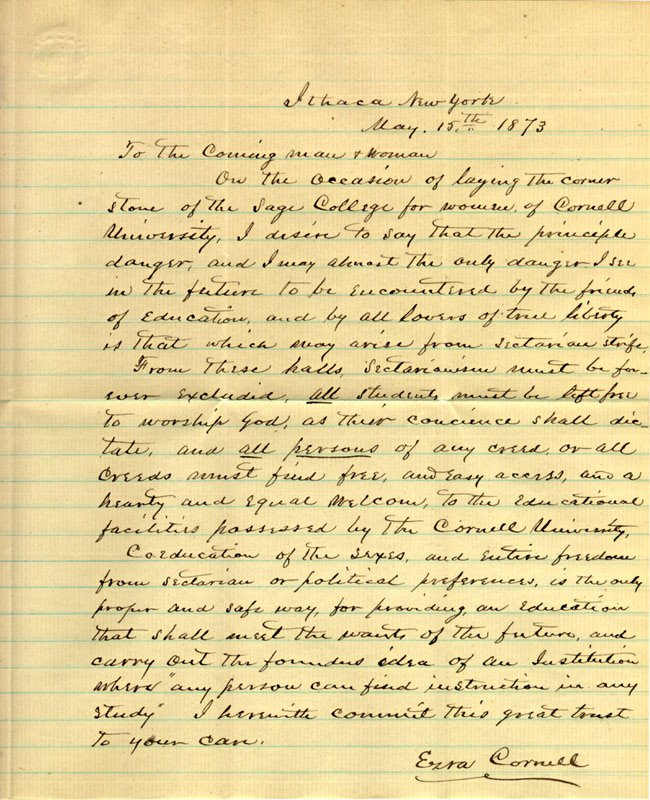 Ithaca New York
May. 15th 1873
To the Coming man & woman
On the occasion of laying the corner
stone of the Sage College for women, of Cornell
University, I desire to say that the principle
danger, and I may almost the only danger I see
in the future to be encountered by the friends
of Education, and by all lovers of true liberty
is that which may arise from sectarian strife.
From these halls, sectarianism must be for-
ever excluded, all students must be left free
to worship God, as their concience shall dic-
tate, and all persons of any creed, or all
creeds must find free, and easy access, and a
hearty and equal welcom, to the Educational
facilities possessed by the Cornell University.
Coeducation of the sexes, and entire freedom
from sectarian or political preferences, is the only
proper and safe way, for providing an Education
that shall meet the wants of the future, and
carry out the founders idea of an Institution
where "any person can find instruction in any
study" I herewith commit this great trust
to your care.
Ezra Cornell